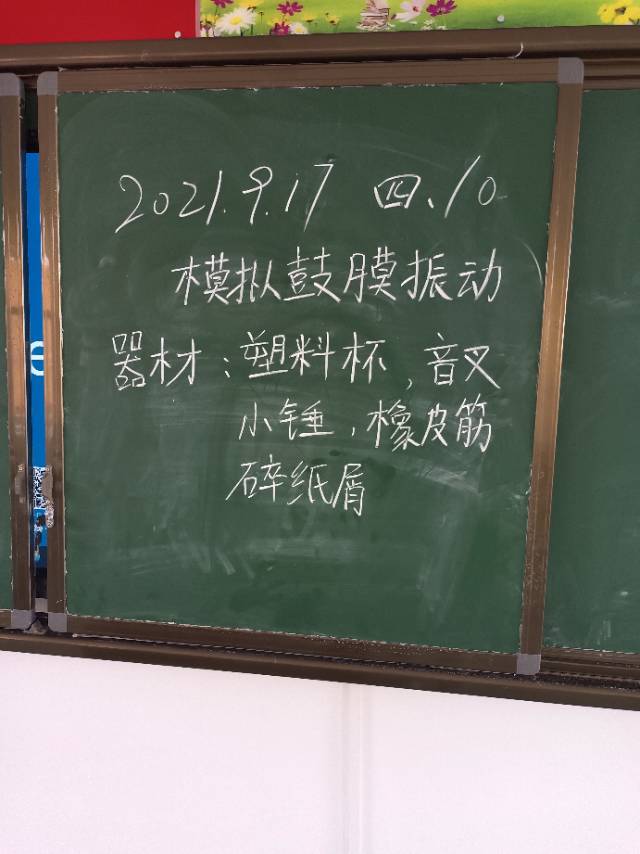 2021.9.17 四、10
模拟鼓膜振动
器材：塑料杯，音叉
小锤，橡皮筋
碎纸屑